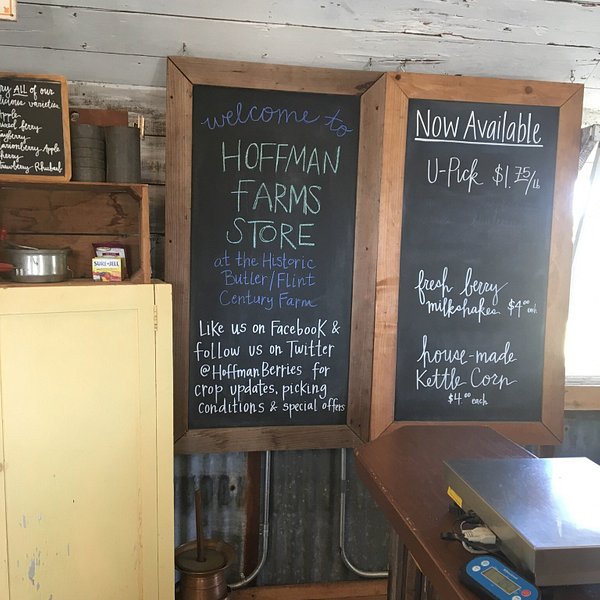 ry ALL of our
licious varieties
Apple
ixed berry
ayberry
arionberry Apple
herry
trawberry-Rhubarb
SURE-JELL
welcome to
HOFFMAN
FARMS
STORE
at the Historic
Butler/Flint
Century Farm
Like us on Facebook &
follow us on Twitter
@HoffmanBerries for
crop updates, picking
conditions & special offers
Now Available
U-Pick $1.75/LB
fresh berry
milkshakes $4.00 each
house-made
Kettle Corn
$4.00 each